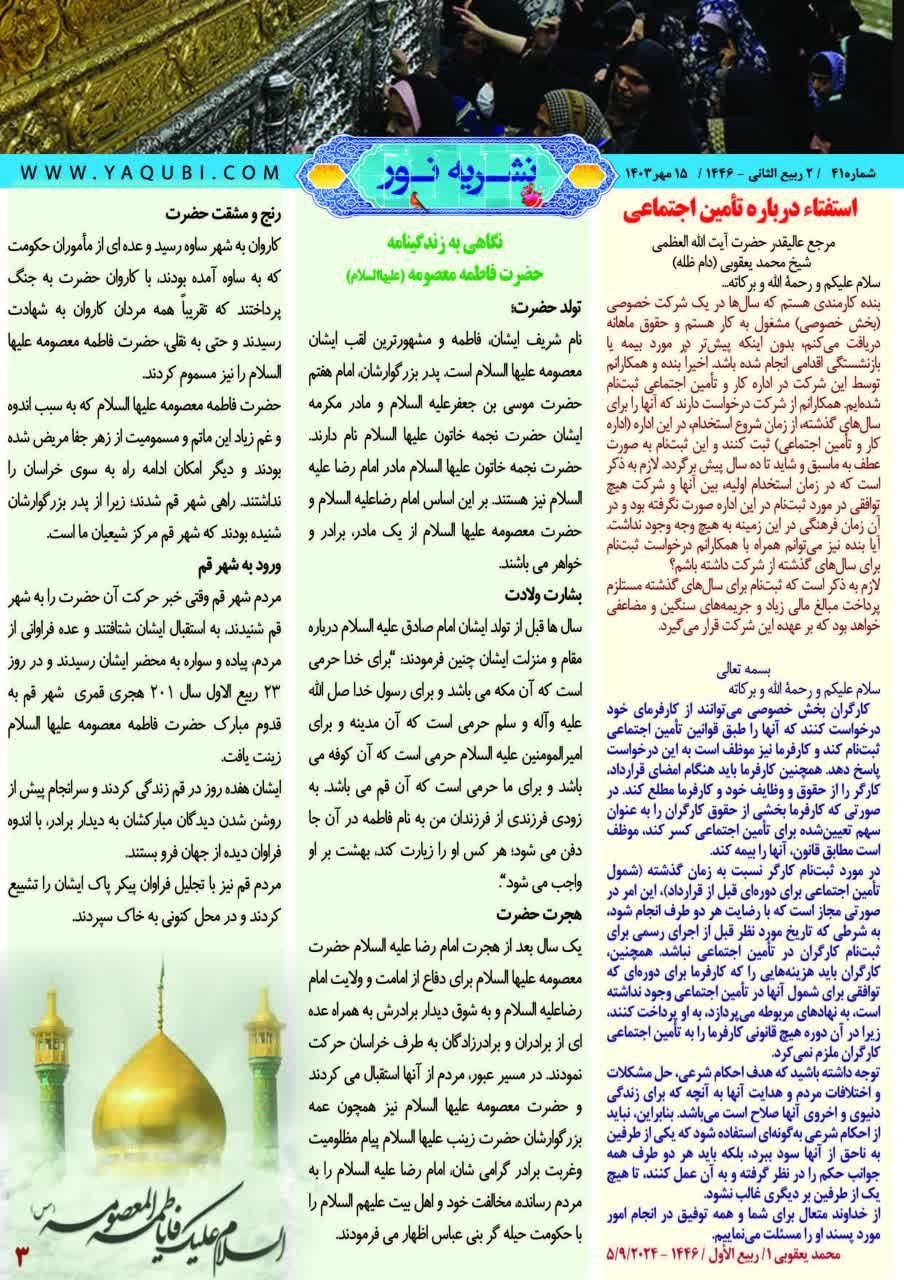 شماره۴۱ / ۲ ربیع الثانی - ۱۴۴۶ / ۱۵ مهر۱۴۰۳
نشریه نور
WWW.YAQUBI.COM
استفتاء درباره تأمین اجتماعی
مرجع عالیقدر حضرت آیت الله العظمی
شیخ محمد یعقوبی (دام ظله)
سلام علیکم و رحمة الله و برکاته...
بنده کارمندی هستم که سال‌ها در یک شرکت خصوصی
(بخش خصوصی) مشغول به کار هستم و حقوق ماهانه
دریافت می‌کنم، بدون اینکه پیش‌تر در مورد بیمه یا
بازنشستگی اقدامی انجام شده باشد. اخیراً بنده و همکارانم
توسط این شرکت در اداره کار و تأمین اجتماعی ثبت‌نام
شده‌ایم. همکارانم از شرکت درخواست دارند که آنها را برای
سال‌های گذشته، از زمان شروع استخدام، در این اداره (اداره
کار و تأمین اجتماعی) ثبت کنند و این ثبت‌نام به صورت
عطف به ماسبق و شاید تا ده سال پیش برگردد. لازم به ذکر
است که در زمان استخدام اولیه، بین آنها و شرکت هیچ
توافقی در مورد ثبت‌نام در این اداره صورت نگرفته بود و در
آن زمان فرهنگی در این زمینه به هیچ وجه وجود نداشت.
آیا بنده نیز می‌توانم همراه با همکارانم درخواست ثبت‌نام
برای سال‌های گذشته از شرکت داشته باشم؟
لازم به ذکر است که ثبت‌نام برای سال‌های گذشته مستلزم
پرداخت مبالغ مالی زیاد و جریمه‌های سنگین و مضاعفی
خواهد بود که بر عهده این شرکت قرار می‌گیرد.
بسمه تعالی
سلام علیکم و رحمة الله و برکاته
کارگران بخش خصوصی می‌توانند از کارفرمای خود
درخواست کنند که آنها را طبق قوانین تأمین اجتماعی
ثبت‌نام کند و کارفرما نیز موظف است به این درخواست
پاسخ دهد. همچنین کارفرما باید هنگام امضای قرارداد،
کارگر را از حقوق و وظایف خود و کارفرما مطلع کند. در
صورتی که کارفرما بخشی از حقوق کارگران را به عنوان
سهم تعیین‌شده برای تأمین اجتماعی کسر کند، موظف
است مطابق قانون، آنها را بیمه کند.
در مورد ثبت‌نام کارگر نسبت به زمان گذشته (شمول
تأمین اجتماعی برای دوره‌ای قبل از قرارداد)، این امر در
صورتی مجاز است که با رضایت هر دو طرف انجام شود،
به شرطی که تاریخ مورد نظر قبل از اجرای رسمی برای
ثبت‌نام کارگران در تأمین اجتماعی نباشد. همچنین،
کارگران باید هزینه‌هایی را که کارفرما برای دوره‌ای که
توافقی برای شمول آنها در تأمین اجتماعی وجود نداشته
است، به نهادهای مربوطه می‌پردازد، به او پرداخت کنند،
زیرا در آن دوره هیچ قانونی کارفرما را به تأمین اجتماعی
کارگران ملزم نمی‌کرد.
توجه داشته باشید که هدف احکام شرعی، حل مشکلات
و اختلافات مردم و هدایت آنها به آنچه که برای زندگی
دنیوی و اخروی آنها صلاح است می‌باشد. بنابراین، نباید
از احکام شرعی به‌گونه‌ای استفاده شود که یکی از طرفین
به ناحق از آنها سود ببرد، بلکه باید هر دو طرف همه
جوانب حکم را در نظر گرفته و به آن عمل کنند، تا هیچ
یک از طرفین بر دیگری غالب نشود.
از خداوند متعال برای شما و همه توفیق در انجام امور
مورد پسند او را مسئلت می‌نماییم.
محمد یعقوبی ۱/ ربیع الأول / ۱۴۴۶ - ۵/۹/۲۰۲۴
نگاهی به زندگینامه
حضرت فاطمه معصومه (علیهاالسلام)
تولد حضرت؛
نام شریف ایشان، فاطمه و مشهورترین لقب ایشان
معصومه علیها السلام است. پدر بزرگوارشان، امام هفتم
حضرت موسی بن جعفرعلیه السلام و مادر مکرمه
ایشان حضرت نجمه خاتون علیها السلام نام دارند.
حضرت نجمه خاتون علیها السلام مادر امام رضا علیه
السلام نیز هستند. بر این اساس امام رضاعلیه السلام و
حضرت معصومه علیها السلام از یک مادر، برادر و
خواهر می باشند.
بشارت ولادت
سال ها قبل از تولد ایشان امام صادق علیه السلام درباره
مقام و منزلت ایشان چنین فرمودند: "برای خدا حرمی
است که آن مکه می باشد و برای رسول خدا صل الله
علیه وآله و سلم حرمی است که آن مدینه و برای
امیرالمومنین علیه السلام حرمی است که آن کوفه می
باشد و برای ما حرمی است که آن قم می باشد. به
زودی فرزندی از فرزندان من به نام فاطمه در آن جا
دفن می شود؛ هر کس او را زیارت کند، بهشت بر او
واجب می شود".
هجرت حضرت
یک سال بعد از هجرت امام رضا علیه السلام حضرت
معصومه علیها السلام برای دفاع از امامت و ولایت امام
رضاعلیه السلام و به شوق دیدار برادرش به همراه عده
ای از برادران و برادرزادگان به طرف خراسان حرکت
نمودند. در مسیر عبور، مردم از آنها استقبال می کردند
و حضرت معصومه علیها السلام نیز همچون عمه
بزرگوارشان حضرت زینب علیها السلام پیام مظلومیت
وغربت برادر گرامی شان، امام رضا علیه السلام را به
مردم رسانده، مخالفت خود و اهل بیت علیهم السلام را
با حکومت حیله گر بنی عباس اظهار می فرمودند.
رنج و مشقت حضرت
کاروان به شهر ساوه رسید و عده ای از مأموران حکومت
که به ساوه آمده بودند، با کاروان حضرت به جنگ
پرداختند که تقریباً همه مردان کاروان به شهادت
رسیدند و حتی به نقلی، حضرت فاطمه معصومه علیها
السلام را نیز مسموم کردند.
حضرت فاطمه معصومه علیها السلام که به سبب اندوه
و غم زیاد این ماتم و مسمومیت از زهر جفا مریض شده
بودند و دیگر امکان ادامه راه به سوی خراسان را
نداشتند. راهی شهر قم شدند؛ زیرا از پدر بزرگوارشان
شنیده بودند که شهر قم مرکز شیعیان ما است.
ورود به شهر قم
مردم شهر قم وقتی خبر حرکت آن حضرت را به شهر
قم شنیدند، به استقبال ایشان شتافتند و عده فراوانی از
مردم، پیاده و سواره به محضر ایشان رسیدند و در روز
۲۳ ربیع الاول سال ۲۰۱ هجری قمری  شهر قم به
قدوم مبارک حضرت فاطمه معصومه علیها السلام
زینت یافت.
ایشان هفده روز در قم زندگی کردند و سرانجام پیش از
روشن شدن دیدگان مبارکشان به دیدار برادر، با اندوه
فراوان دیده از جهان فرو بستند.
مردم قم نیز با تجلیل فراوان پیکر پاک ایشان را تشییع
کردند و در محل کنونی به خاک سپردند.
السلام علیک یا فاطمة المعصومه (س)
۳